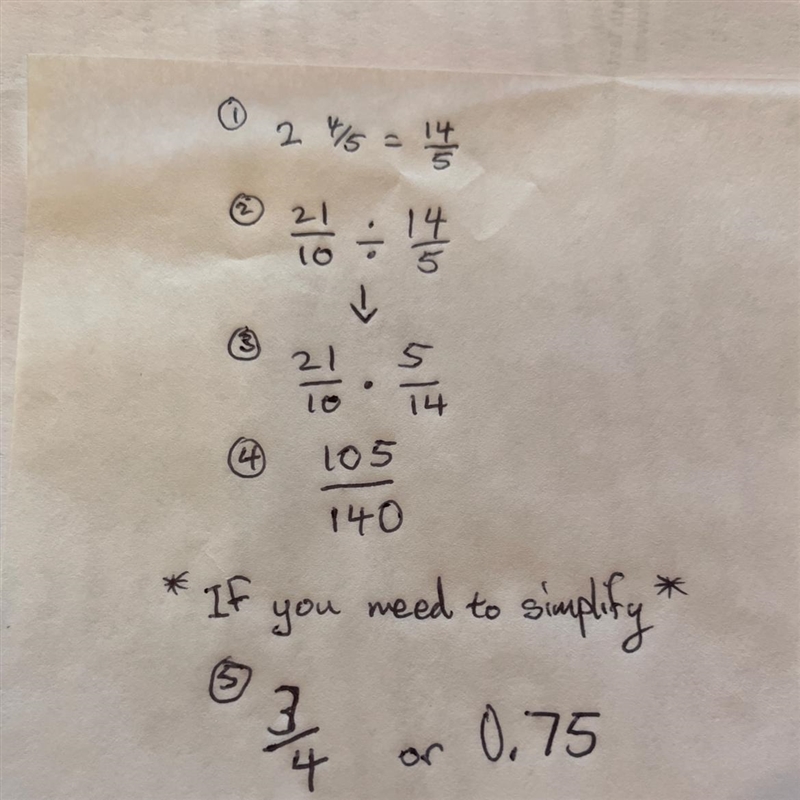 ① 2 4/5 = 14/5
② 21/10 ÷ 14/5
↓
③ 21/10 · 5/14
④ 105/140
* If you need to simplify *
⑤ 3/4 or 0.75